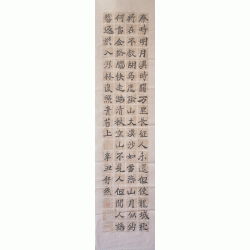 秦時明月漢時關萬里長征人未還但使龍城飛
將在不教胡馬度陰山大漠沙如雪燕山月似鈎
何當金絡腦快走踏清秋空山不見人但聞人語
響返景入深林復照青苔上 辛丑